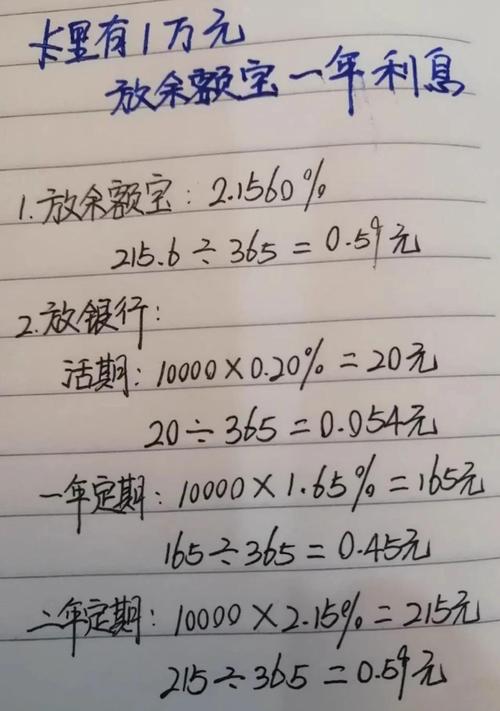 卡里有1万元
放余额宝一年利息
1.放余额宝：2.1560%
215.6÷365=0.59元
2.放银行：
活期：10000×0.20%=20元
20÷365=0.054元
一年定期：10000×1.65%=165元
165÷365=0.45元
二年定期：10000×2.15%=215元
215÷365=0.59元